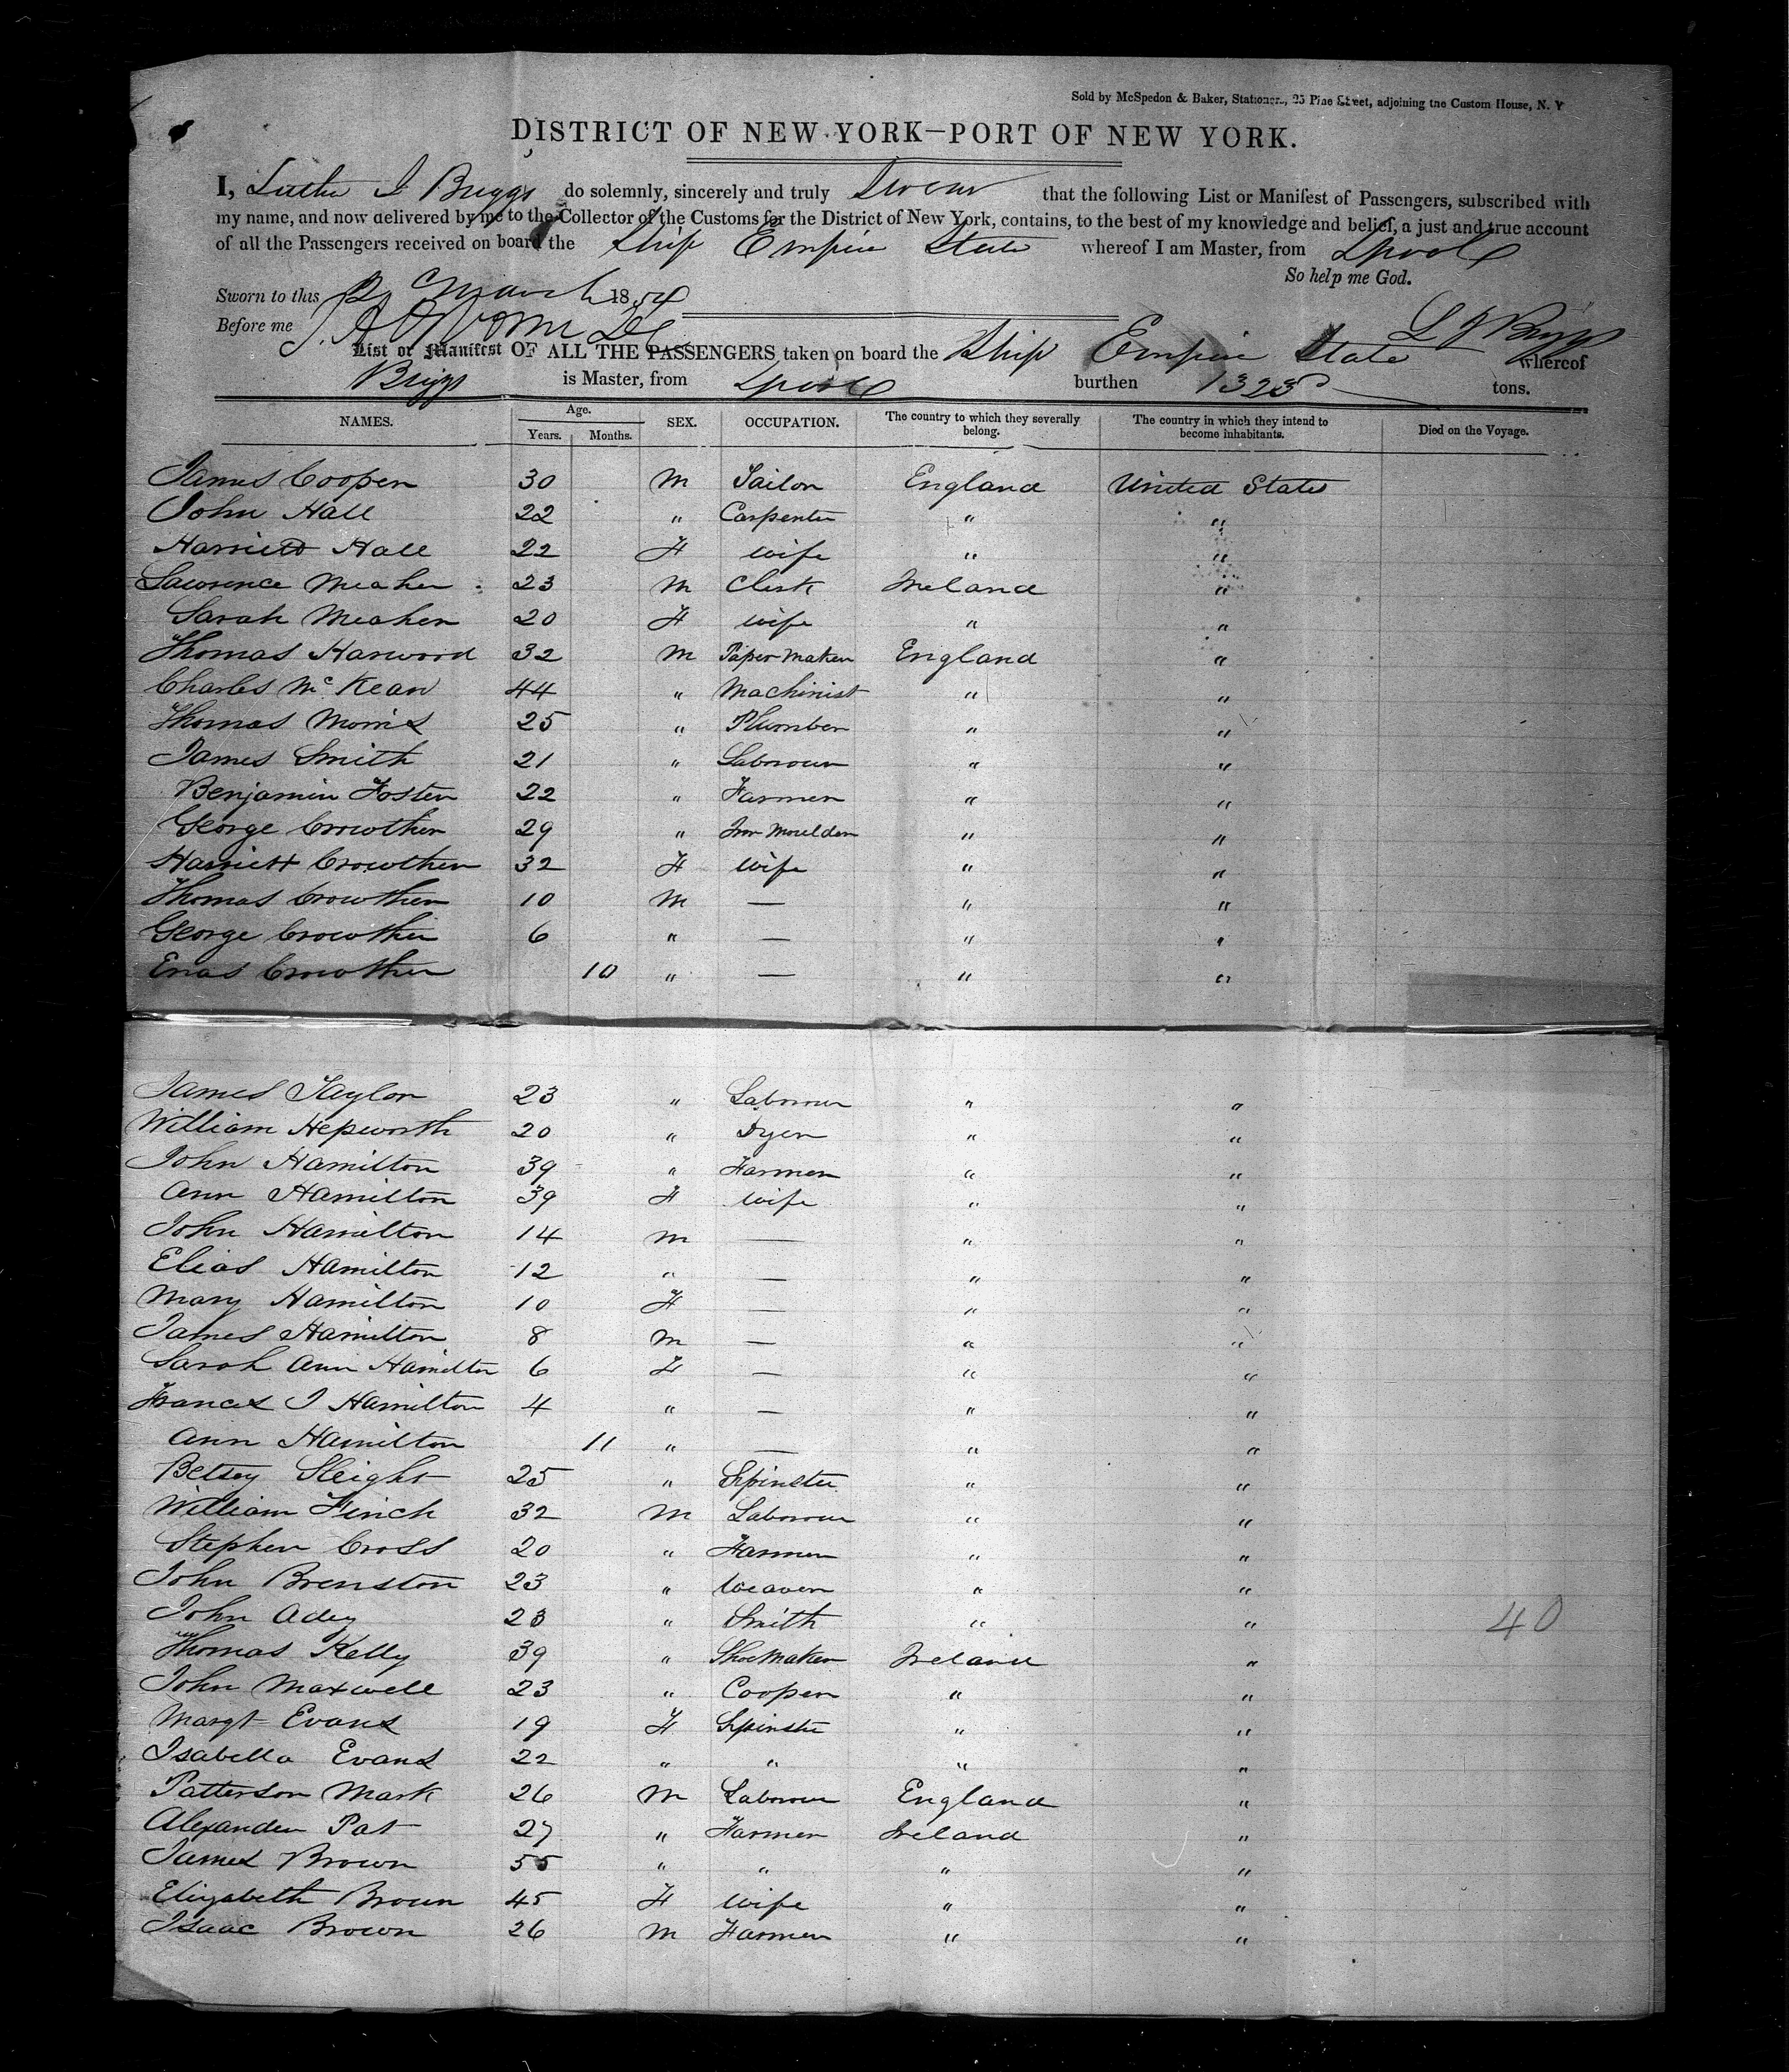 Sold by McSpedon & Baker, Stationers, 25 Pine Street, adjoining the Custom House, N. Y
DISTRICT OF NEW YORK—PORT OF NEW YORK.
I, Luther J Briggs do solemnly, sincerely and truly Swear that the following List or Manifest of Passengers, subscribed with
my name, and now delivered by me to the Collector of the Customs for the District of New York, contains, to the best of my knowledge and belief, a just and true account
of all the Passengers received on board the Ship Empire State whereof I am Master, from Lpool
So help me God.
Sworn to this March 1854
Before me L J Briggs
List or Manifest OF ALL THE PASSENGERS taken on board the Ship Empire State whereof
Briggs is Master, from Lpool burthen 1323 tons.
NAMES. Age. Years. Months. SEX. OCCUPATION. The country to which they severally belong. The country in which they intend to become inhabitants. Died on the Voyage.
James Cooper 30 M Sailor England United States
John Hall 22 " Carpenter " "
Harriett Hall 22 F Wife " "
Lawrence Meaher 23 M Clerk Ireland "
Sarah Meaher 20 F Wife " "
Thomas Harwood 32 M Paper Maker England "
Charles McKean 44 " Machinist " "
Thomas Morris 25 " Plumber " "
James Smith 21 " Labourer " "
Benjamin Foster 22 " Farmer " "
George Crowther 29 " Iron Moulder " "
Harriett Crowther 32 F Wife " "
Thomas Crowther 10 M — " "
George Crowther 6 " — " "
Enas Crowther 10 " — " "
James Taylor 23 " Labourer " "
William Hepworth 20 " Dyer " "
John Hamilton 39 " Farmer " "
Ann Hamilton 39 F Wife " "
John Hamilton 14 M — " "
Elias Hamilton 12 " — " "
Mary Hamilton 10 F — " "
James Hamilton 8 M — " "
Sarah Ann Hamilton 6 F — " "
Frances J Hamilton 4 " — " "
Ann Hamilton 11 " — " "
Betsey Sleight 25 " Spinster " "
William Finch 32 M Labourer " "
Stephen Cross 20 " Farmer " "
John Brenston 23 " Weaver " "
John Adey 23 " Smith " " 40
Thomas Kelly 39 " Shoemaker Ireland "
John Maxwell 23 " Cooper " "
Margt Evans 19 F Spinster " "
Isabella Evans 22 " " " "
Patterson Mark 26 M Labourer England "
Alexander Pat 27 " Farmer Ireland "
James Brown 55 " " " "
Elizabeth Brown 45 F Wife " "
Isaac Brown 26 M Farmer " "